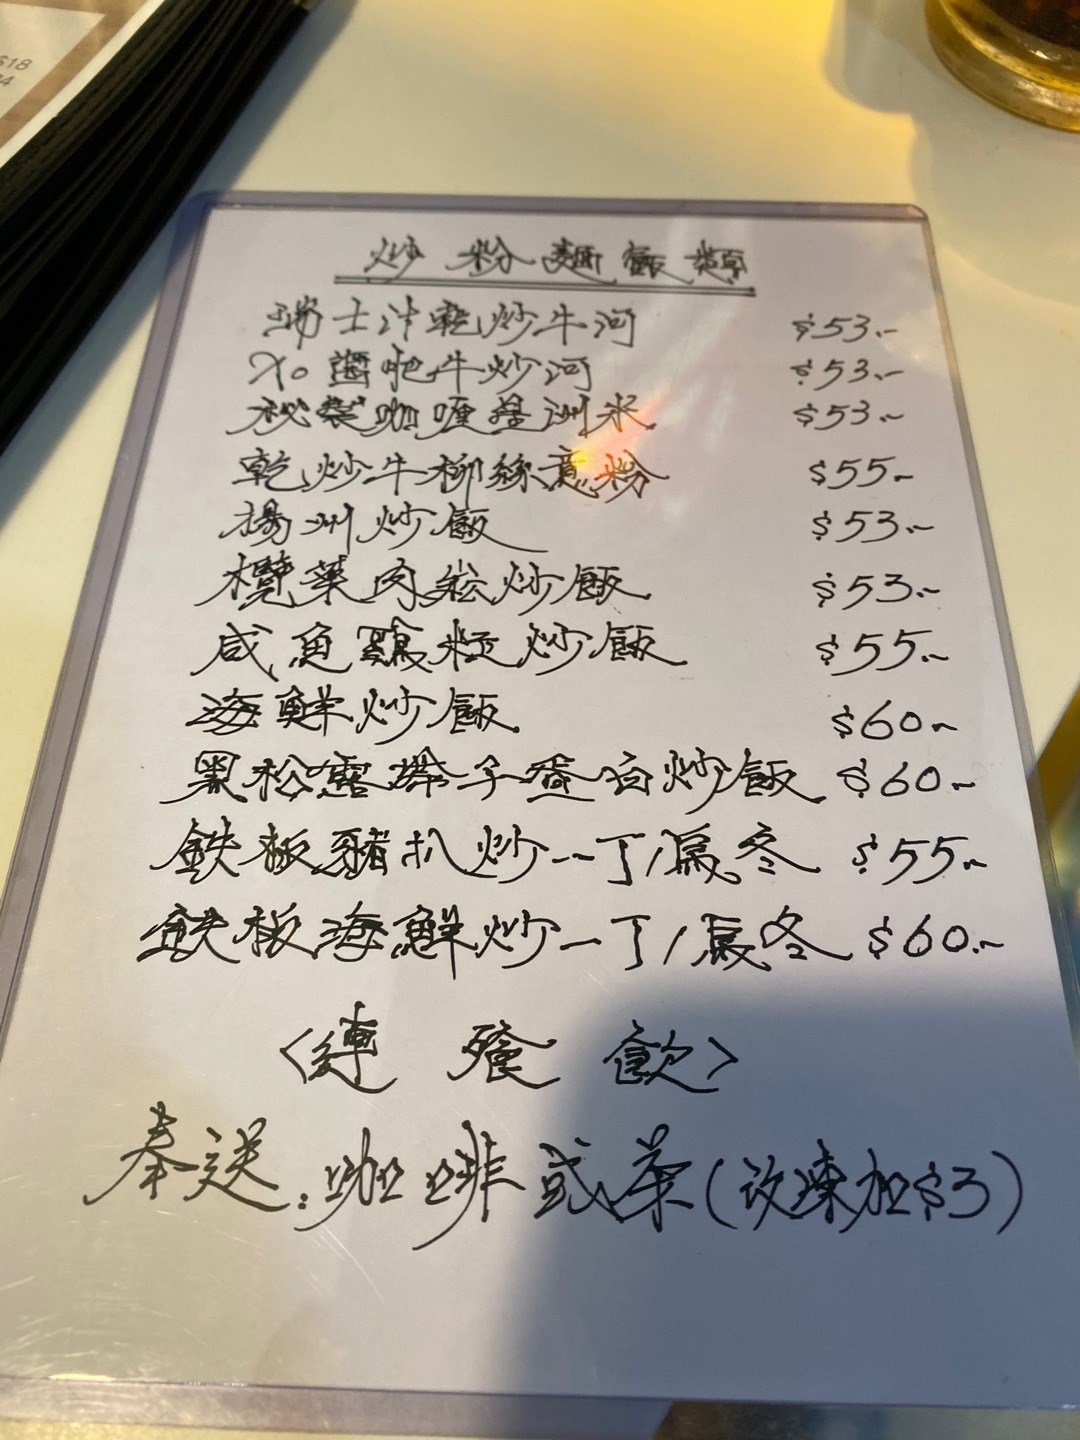 $18
炒粉麵飯類
瑞士汁乾炒牛河 $53.-
XO醬啪牛炒河 $53.-
秘製咖喱星洲米 $53.-
乾炒牛柳絲意粉 $55.-
揚州炒飯 $53.-
欖菜肉崧炒飯 $53.-
咸魚雞粒炒飯 $55.-
海鮮炒飯 $60.-
黑松露帶子蛋白炒飯 $60.-
鉄板豬扒炒一丁/烏冬 $55.-
鉄板海鮮炒一丁/烏冬 $60.-
<連餐飲>
奉送:咖啡或茶(改凍加$3)